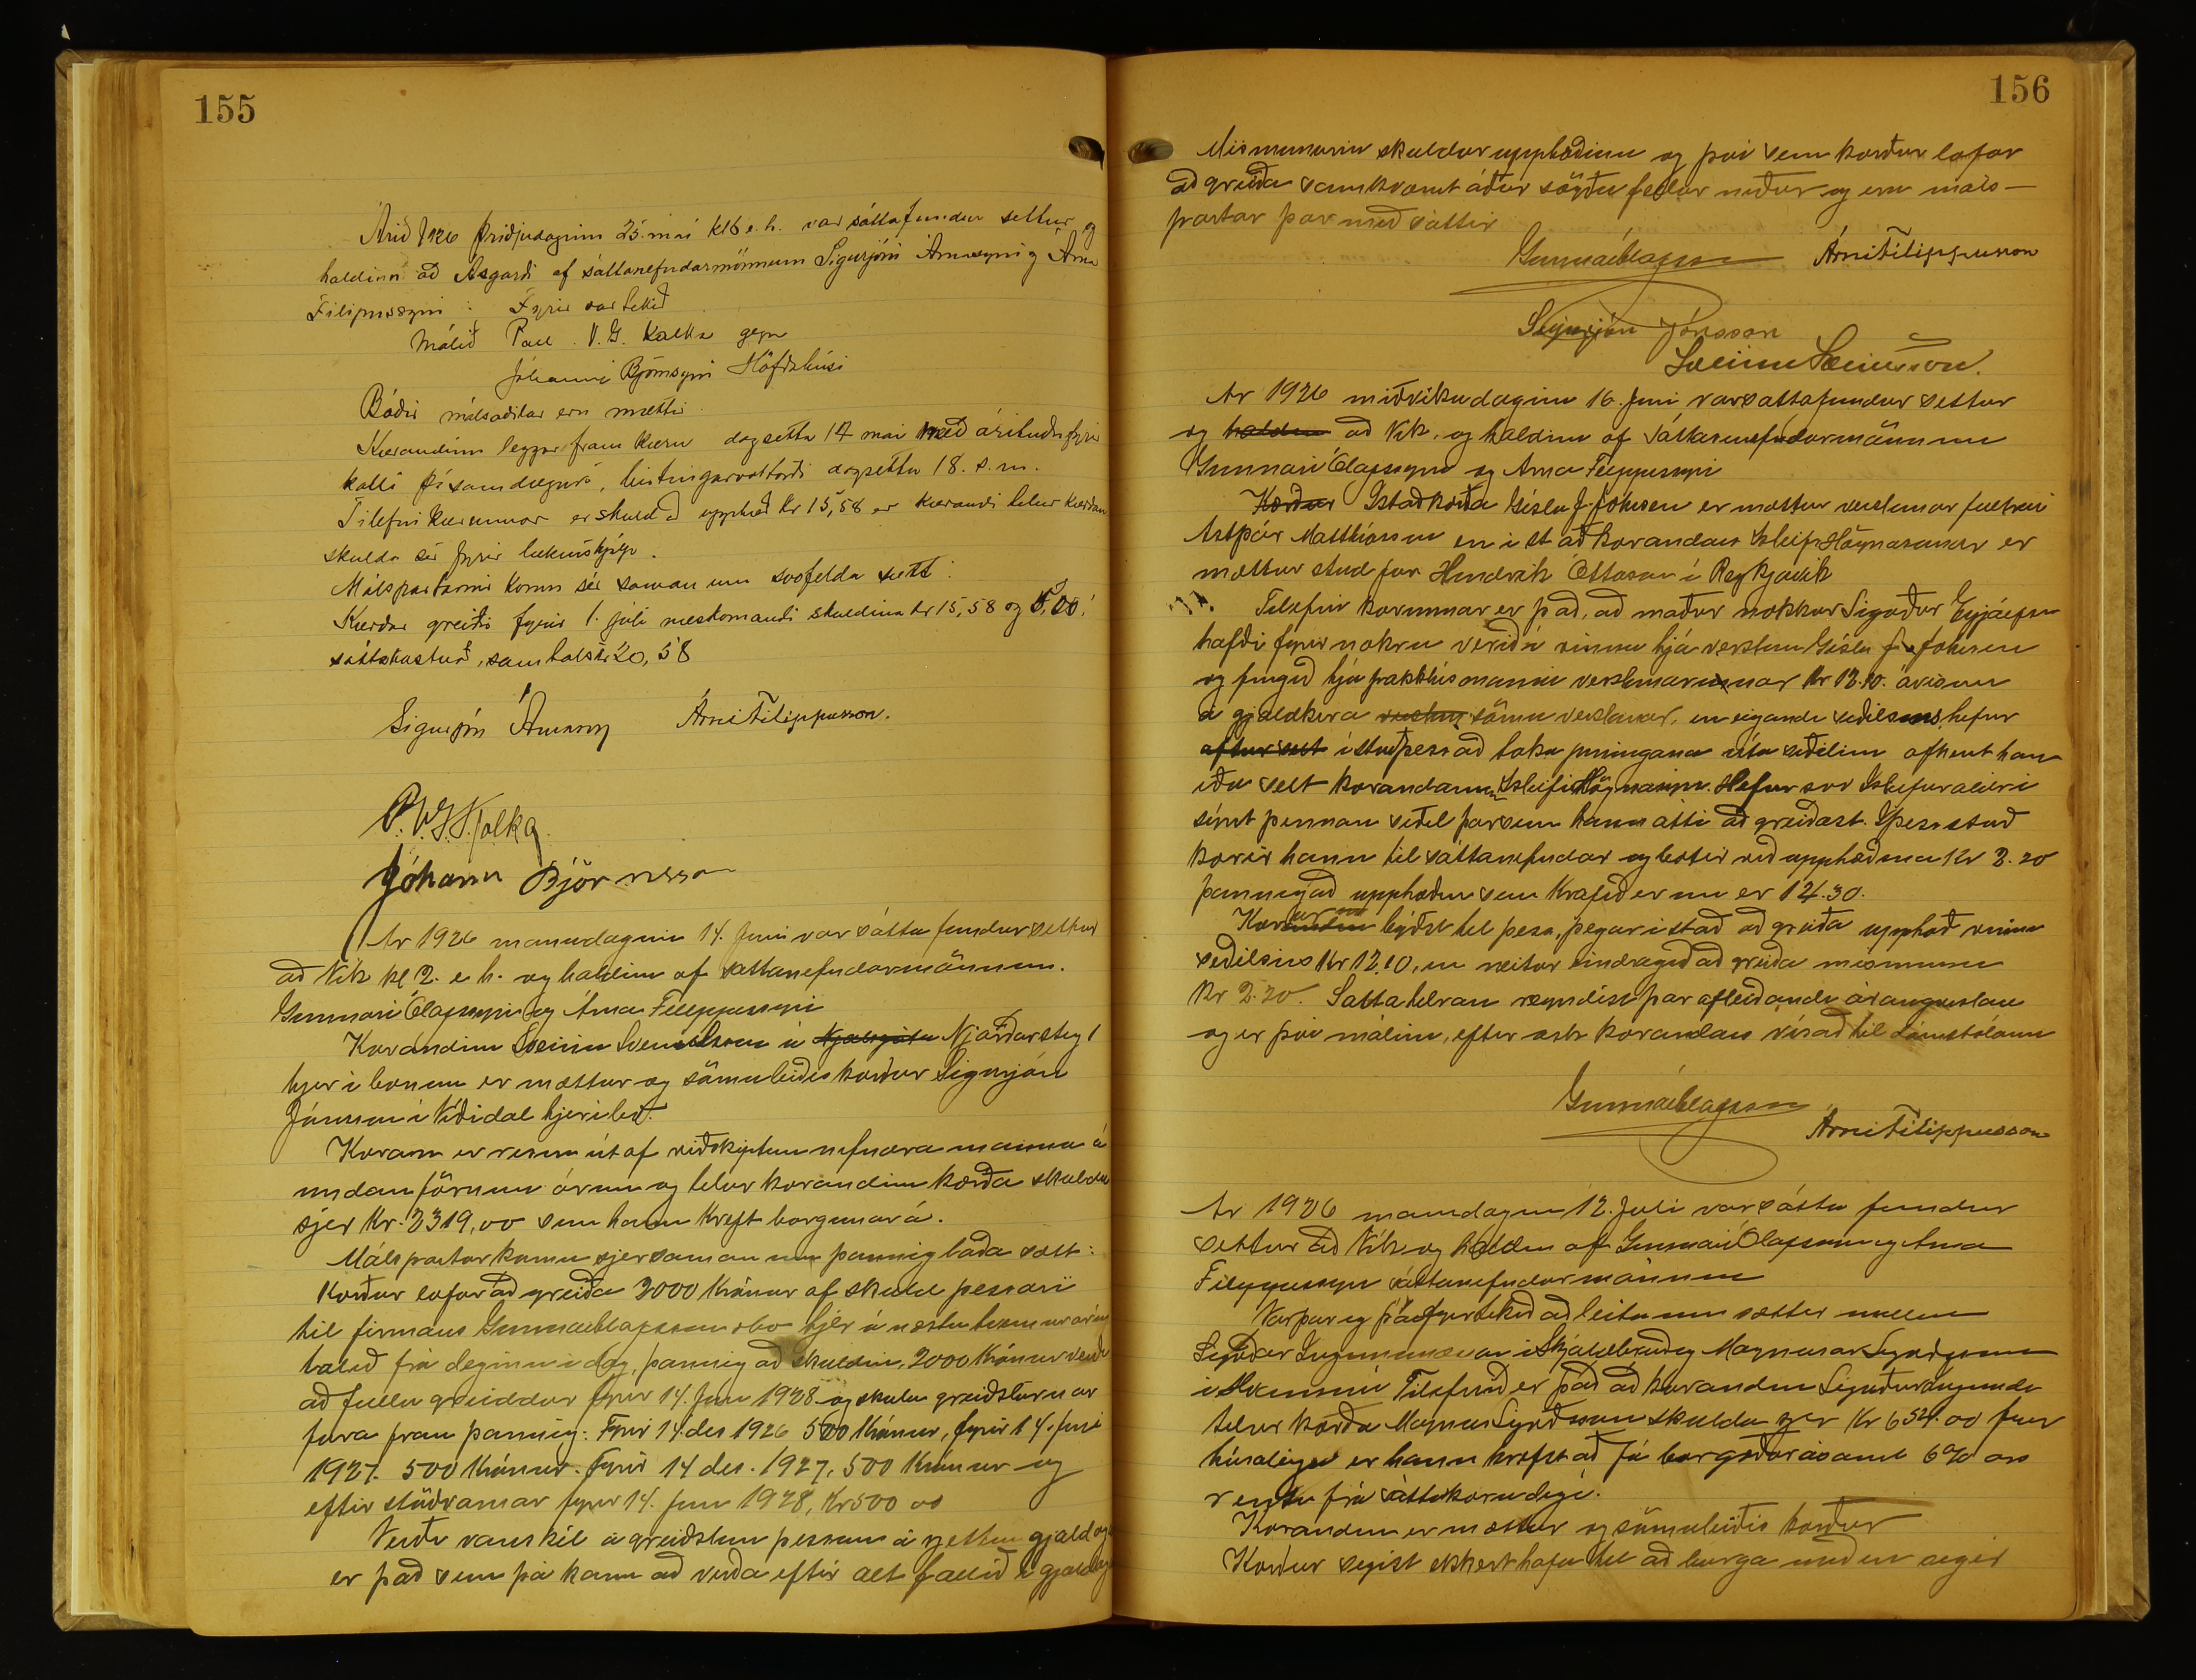 155
Árið 1926 þriðjudaginn 25. maí kl 6 e.h. var sáttafundur settur og
haldinn að Ásgarði af sáttanefndarmönnum Sigurjóni Árnasyni og Árna
Filipussyni : Fyrir var tekið
Málið Páll V. G. Kolka gegn
Jóhanni Björnssyni Höfðahúsi
Báðir málsaðilar eru mættir.
Kærandinn leggur fram kæru dagsetta 17 maí með árituðu fyrir
kalli þ. samdægurs, birtingarvottorði dagsettu 18. s.m.
Tilefni kærunnar er skuld að upphæð kr 15,58 er kærandi telur kærðan
skulda sér fyrir læknishjálp.
Málspartarnir komu sér saman um svofelda sætt:
Kærður greiði fyrir 1. júlí næstkomandi skuldina kr 15,58 og 5,00
sáttakostnað, samtals kr 20,58
Sigurjón Árnason Árni Filippusson.
P. V. G. Kolka.
Jóhann Björnsson
Ár 1926 manudaginn 14. Juni var sátta fundur settur
að Vík kl 2. e h. og haldinn af sattanefndarmönnum.
Gunnari Ólafssyni og Árna Filippussyni
Kærandinn Sveinn Sveinsson á Njarðarstig 1
hjer i bænum er mættur og sömuleiðis kærður Sigurjón
Jónsson í Víðidal hjer i bæ.
Kæran er risin út af viðskiptum nefndra manna á
undanförnum árum og telur kærandinn kærða skulda
sjer Kr. 2319,00 sem hann kreft borgunar á.
Málspartar komu sjer saman um þannig lagaða sætt:
Kærður lofar að greiða 2000 Krónur af skuld þessari
til firmans Gunnar Ólafsson & Co hjer á næstu tveimur árum
talið frá deginum i dag, þannig að skuldin, 2000 Krónur verði
að fullu greiddar fyrir 14. Juni 1928 og skulu greiðslurnar
fara fram þannig: Fyrir 14. des 1926 500 Krónur, fyrir 14. juni
1927. 500 Krónur. Fyrir 14 des. 1927, 500 Krónur og
eftir stöðvarnar fyrir 14. Juni 1928, Kr 500 00
Verði vanskil á greiðslum þessum á rjettum gjalddaga
er það sem þá kann að verða eftir alt fallið í gjalddaga
156
Mismunurin skuldarupphæðinni og því sem kærður lofar
að greiða samkvæmt áður sögðu fellur niður og eru máls-
partar þar með sáttir
Gunnar Ólafsson Árni Filippusson
Sigurjón Jónsson
Sveinn Sveinsson.
Ar 1926 miðvikudaginn 16. Juni var sattafundur settur
og haldin að Vík. og haldinn af sáttanefndarmönnum
Gunnari Ólafssyni og Arna Filippussyni
Kærður Istað kærða Gísla J. Johnsen er mættur verslunar fulltrúi
Astþór Matthíasson en i stað kærandans Isleifs Högnasonar er
mættur stud jur Hendrik Ottoson í Reykjavík
Tilefni kærunnar er það, að maður nokkur Sigurður Eyjólfsson
hafði fyrir nokru verið í vinnu hjá verslun Gísla J. Johnsen
og fengið hjá pakkhúsmanni verslunarinnar Kr 12.10. ávísun
á gjaldkera sömu verslunar, en eigandi seðilsins hefur
aftur selt í stað þess að taka peningana út á seðilinn afhent hann
eða selt kærandanum Isleifi Högnasyni. Hefur svo Isleifur aldrei
sýnt þennan seðil þar sem hann átti að greiðast. I þess stað
kærir hann til sáttanefndar og bætir við upphæðina Kr 2.20
þannig að upphæðin sem krafið er um er 14.30.
Kærður býðst til þess, þegar i stað að greiða upphæð vinnu
seðilsins Kr 12.10, en neitar eindregið að greiða mismuninn
Kr 2.20. Sattatilraun reyndist þar afleiðandi árangurslaus
og er því málinu, eftir ósk kærandans vísað til dómstólanna
Gunnar Ólafsson
Árni Filippusson
Ar 1926 manudaginn 12. Juli var sátta fundur
settur að Vík og haldin af Gunnari Ólafssyni og Arna
Filippussyni sáttanefndarmönnum
Var þar og þá fyrirtekið að leita um sættir millum
i Skjaldbreið og Magnusar
i Hvammi Tilefnið er það að kærandin Sigurður
telur kærða Magnus skulda sjer Kr 652.00 fyrir
húsaleigu er hann krefst að fá borgaðar ásamt 6% ars
rentu frá sáttakærudegi.
Kærandinn er mættur og sömuleiðis kærður
Kærður segist ekkert hafa til að borga með en segir